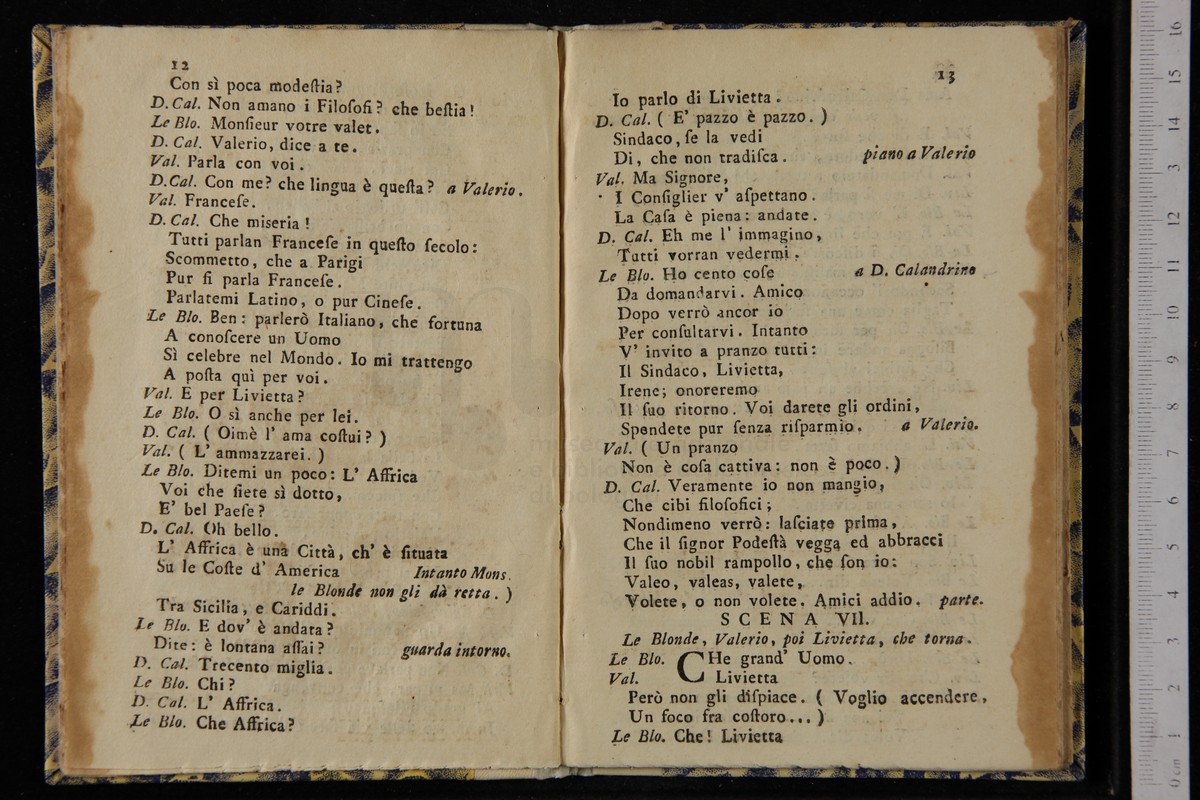 12
Con sì poca modeſtia?
D. Cal. Non amano i Filoſofi? che beſtia!
Le Blo. Monſieur votre valet.
D. Cal. Valerio, dice a te.
Val. Parla con voi.
D. Cal. Con me? che lingua è queſta? a Valerio.
Val. Franceſe.
D. Cal. Che miseria!
Tutti parlan Franceſe in queſto ſecolo:
Scommetto, che a Parigi
Pur ſi parla Franceſe.
Parlatemi Latino, o pur Cineſe.
Le Blo. Ben: parlerò Italiano, che fortuna
A conoſcere un Uomo
Sì celebre nel Mondo. Io mi trattengo
A poſta quì per voi.
Val. E per Livietta?
Le Blo. O sì anche per lei.
D. Cal. ( Oimè l' ama coſtui? )
Val. ( L' ammazzarei. )
Le Blo. Ditemi un poco: L' Affrica
Voi che ſiete sì dotto,
E' bel Paeſe?
D. Cal. Oh bello.
L' Affrica è una Città, ch' è ſituata
Su le Coſte d' America Intanto Mons.
le Blonde non gli dà retta. )
Tra Sicilia, e Cariddi.
Le Blo. E dov' è andata?
Dite: è lontana aſſai? guarda intorno.
D. Cal. Trecento miglia.
Le Blo. Chi?
D. Cal. L' Affrica.
Le Blo. Che Affrica?
13
Io parlo di Livietta.
D. Cal. ( E' pazzo è pazzo. )
Sindaco, ſe la vedi
Di, che non tradiſca. piano a Valerio
Val. Ma Signore,
I Conſiglier v' aſpettano.
La Caſa è piena: andate.
D. Cal. Eh me l' immagino,
Tutti vorran vedermi.
Le Blo. Ho cento coſe a D. Calandrino
Da domandarvi. Amico
Dopo verrò ancor io
Per conſultarvi. Intanto
V' invito a pranzo tutti:
Il Sindaco, Livietta,
Irene; onoreremo
Il ſuo ritorno. Voi darete gli ordini,
Spendete pur ſenza riſparmio. a Valerio.
Val. ( Un pranzo
Non è coſa cattiva: non è poco. )
D. Cal. Veramente io non mangio,
Che cibi filoſofici;
Nondimeno verrò: laſciate prima,
Che il ſignor Podeſtà vegga ed abbracci
Il ſuo nobil rampollo, che ſon io:
Valeo, valeas, valete,
Volete, o non volete. Amici addio. parte.
SCENA VII.
Le Blonde, Valerio, poi Livietta, che torna.
Le Blo. CHe grand' Uomo.
Val. Livietta
Però non gli diſpiace. ( Voglio accendere,
Un foco fra coſtoro... )
Le Blo. Che! Livietta